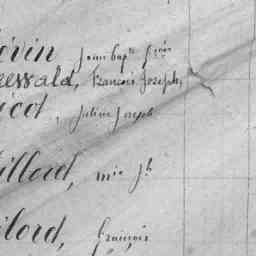 évin Jean bapte
ewald, Francois Joseph,
icot, Julien Joseph
illord, mie Jh
ilord, françois